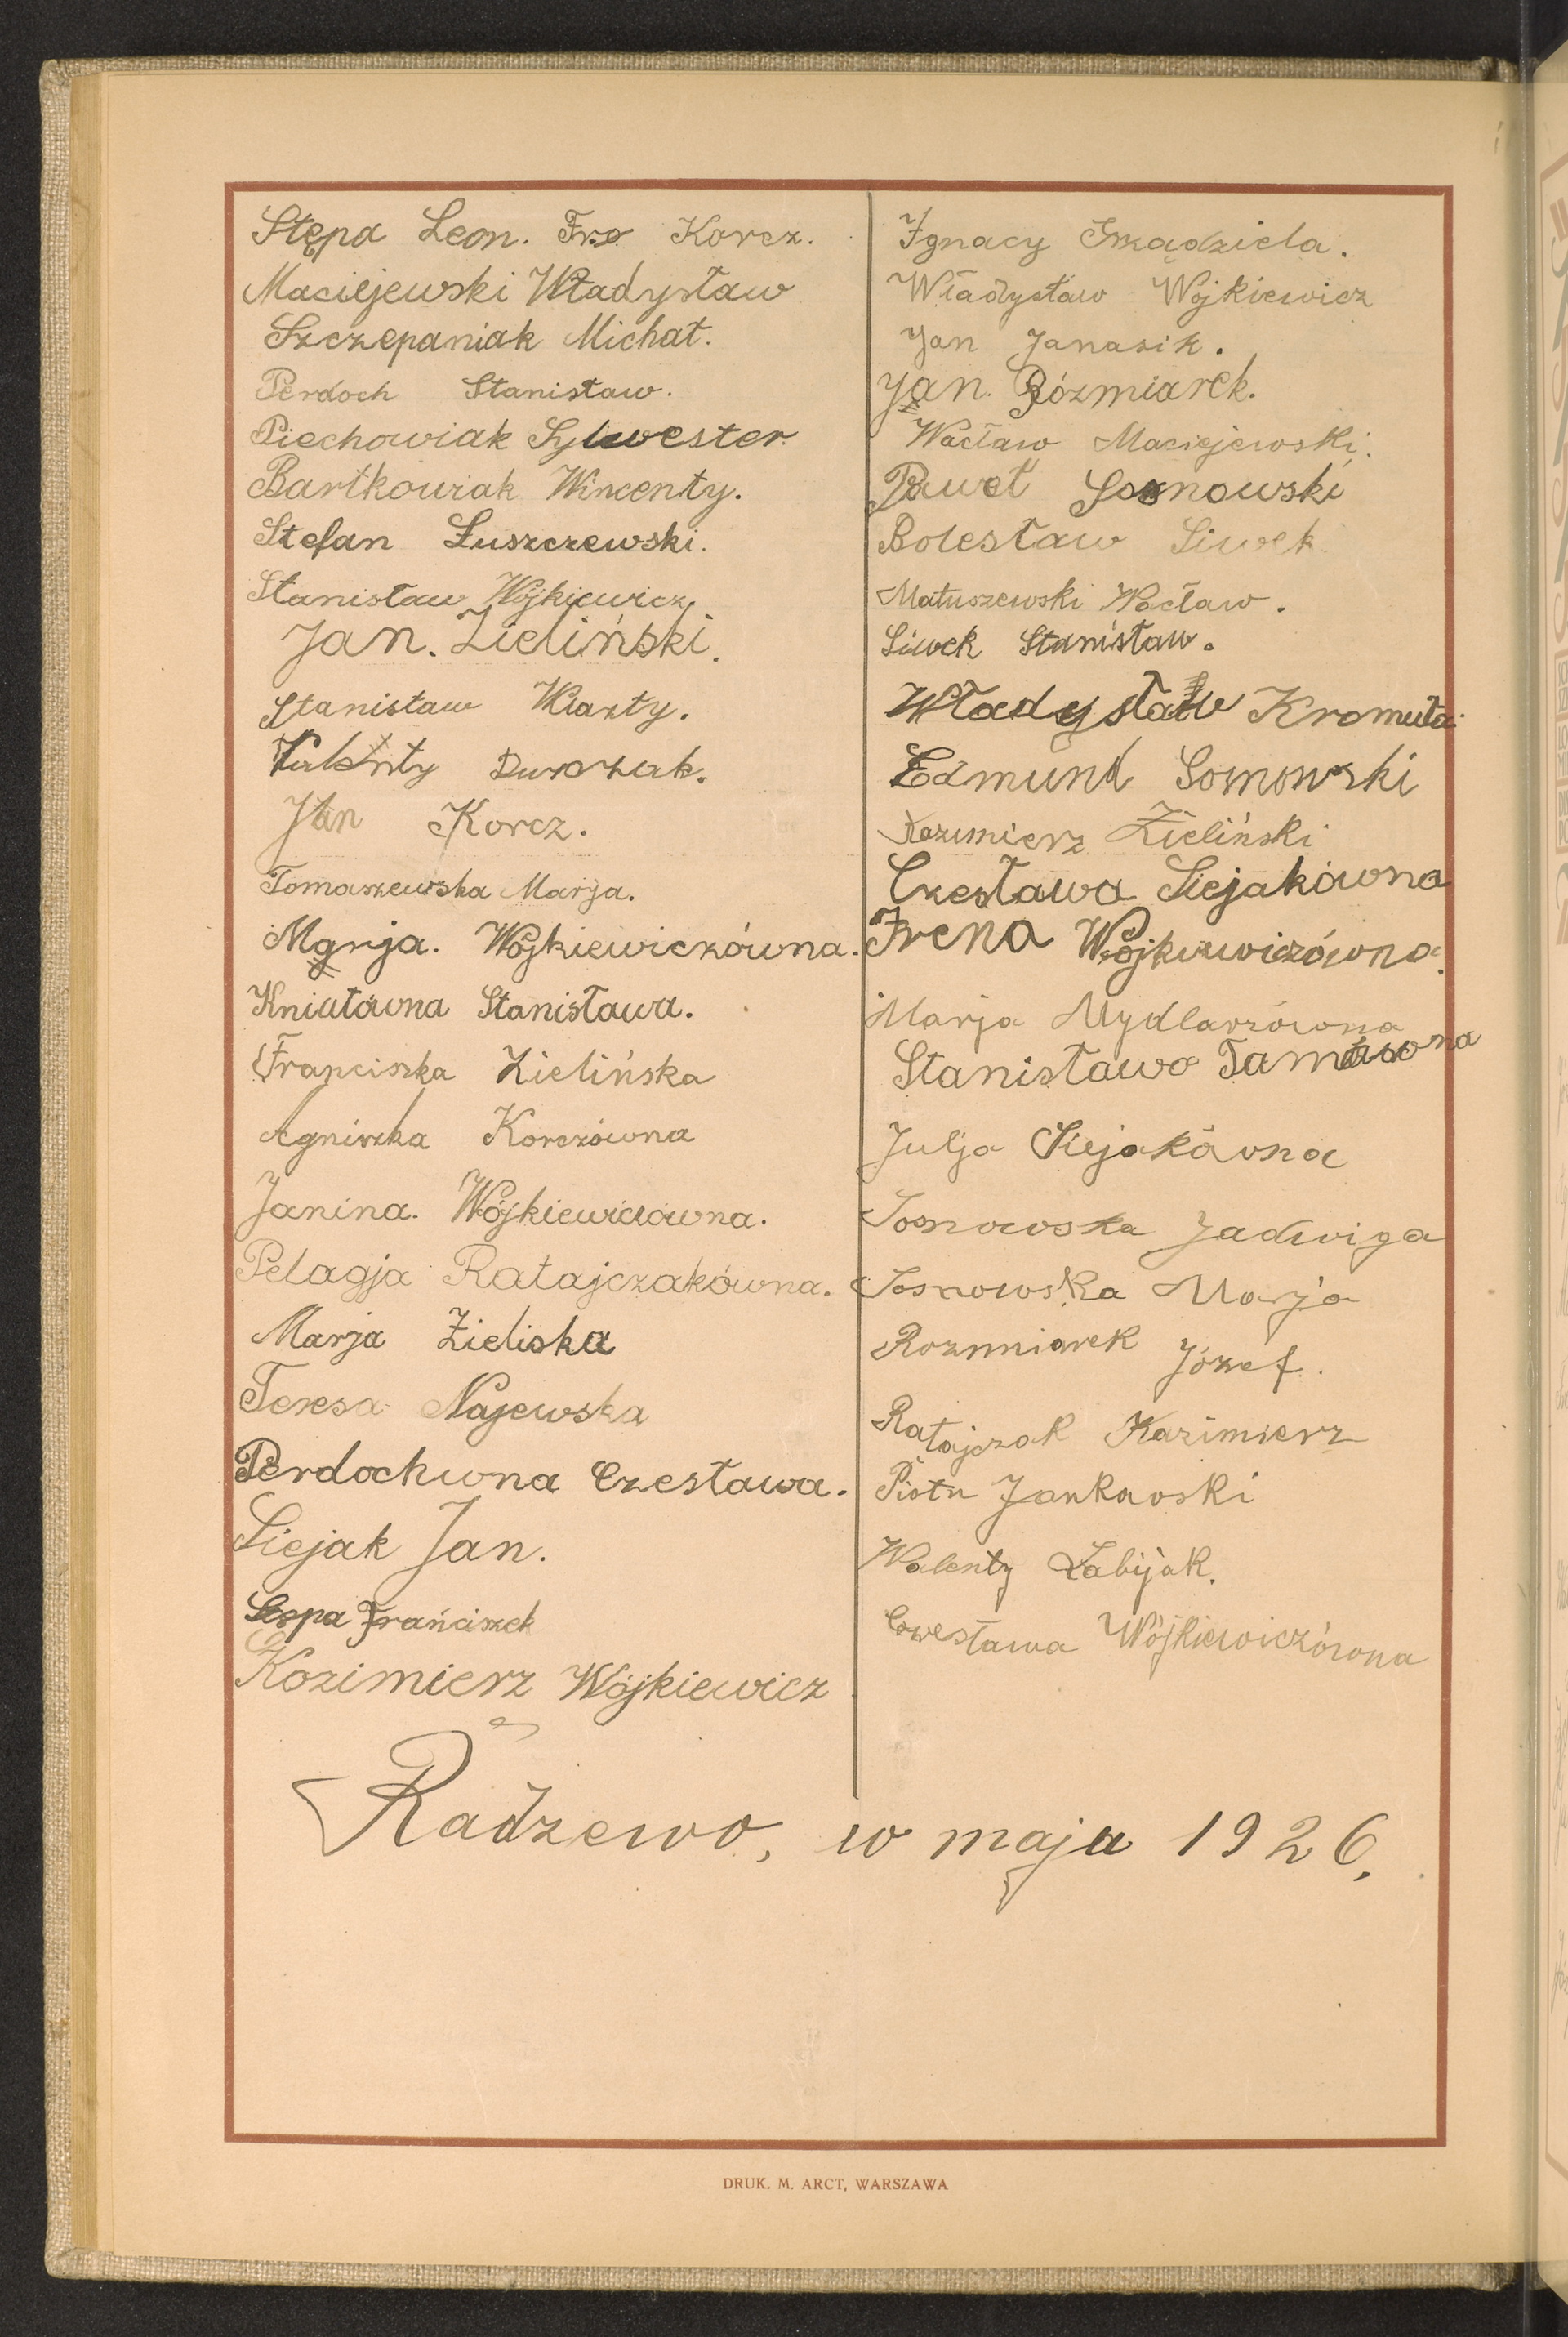 Stępa Leon. Fr. Korcz.
Maciejewski Władysław
Szczepaniak Michał.
Perdoch Stanisław.
Piechowiak Sylwester.
Bartkowiak Wincenty.
Stefan Łuszczewski.
Stanisław Wójkiewicz,
Jan. Zieliński.
Stanisław Kiarty.
Walenty Dworzak.
Jan Korcz.
Tomaszewska Marja.
Marja. Wójkiewiczówna.
Kniatówna Stanisława.
Franciszka Zielińska
Agniszka Korczówna
Janina. Wójkiewiczówna.
Pelagja Ratajczakówna.
Marja Zieliska
Teresa Najewska
Perdochwna Czesława.
Siejak Jan.
Franciszek
Kozimierz Wójkiewicz
Ignacy Grządziela.
Władysław Wójkiewicz
Jan Janasik.
Jan. Rózmiarek.
Wacław Maciejewski.
Paweł Sosnowski
Bolesław Siwek
Matuszewski Wacław.
Siwek Stanisław.
Władysław Kromuła.
Edmund Sosnowski
Kazimierz Zieliński
Czesława Siejakówna
Irena Wójkiewiczówna.
Marja Mydlarzówna
Stanisława
Julja Siejakówna
Sosnowska Jadwiga
Sosnowska Marja
Rozmniarek Józef.
Ratajczak Kazimierz
Piotr Jankowski
Walenty Łabijak.
Czesława Wójkiewiczówna
Radzewo, w maju 1926.
DRUK. M. ARCT, WARSZAWA